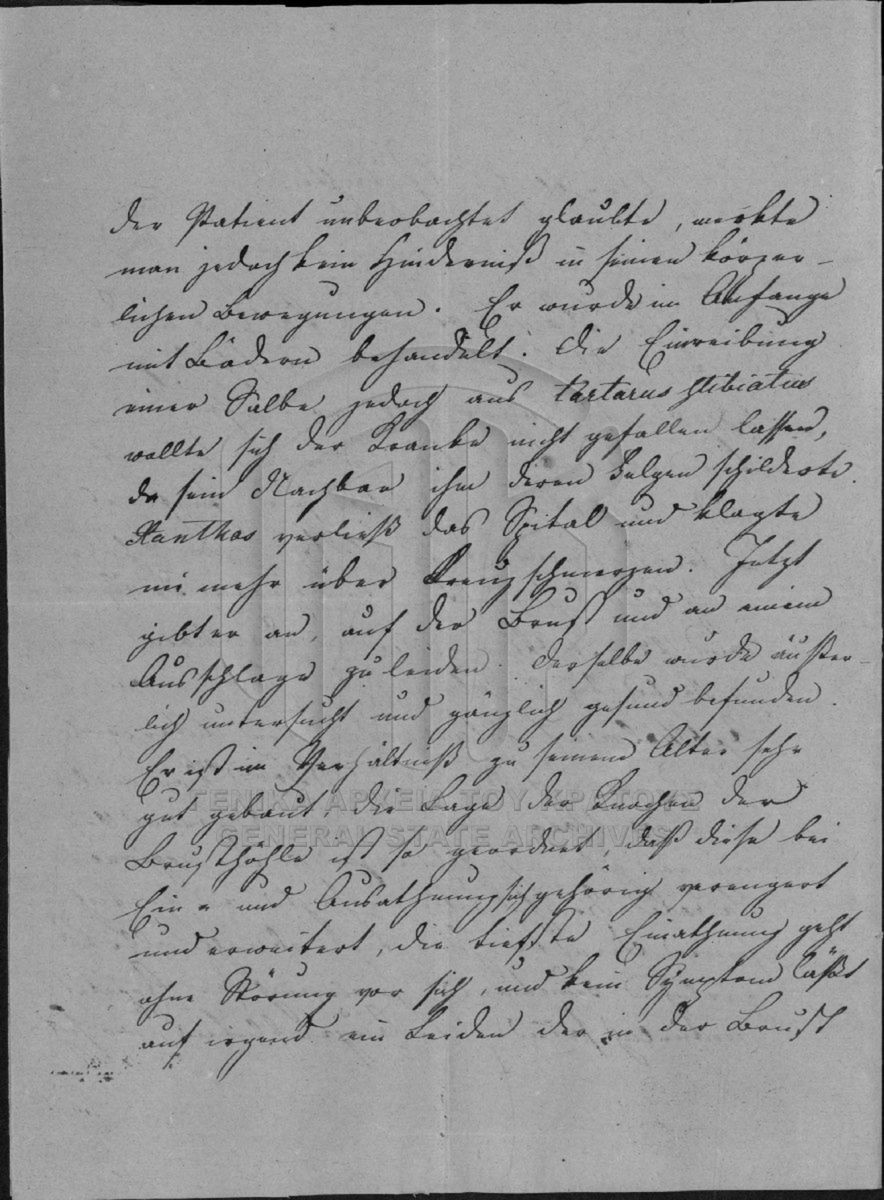 der Patient unbeobachtet glaubte, merkte
man jedoch kein Hinderniß in seinen körper-
lichen Bewegungen. Er wurde im Anfange
mit Bädern behandelt. Die Einreibung
einer Salbe jedoch aus tartarus stibiatus
wollte sich der Kranke nicht gefallen lassen,
da sein Nachbar ihm deren Folgen schilderte.
Xanthos verließ das Spital und klagte
nie mehr über Kreuzschmerzen. Jetzt
gibt er an, auf der Brust und an einem
Ausschlage zu leiden. Derselbe wurde äußer-
lich untersucht und gänzlich gesund befunden.
Er ist im Verhältniß zu seinem Alter sehr
gut gebaut, die Lage der Knochen der
Brusthöhle ist so geordnet, daß diese bei
Ein- und Ausathmung sich gehörig verengert
und erweitert, die tiefste Einathmung geht
ohne Störung vor sich, und kein Symptom läßt
auf irgend ein Leiden der in der Brust
ΓΕΝΙΚΑ ΑΡΧΕΙΑ ΤΟΥ ΚΡΑΤΟΥΣ
GENERAL STATE ARCHIVES